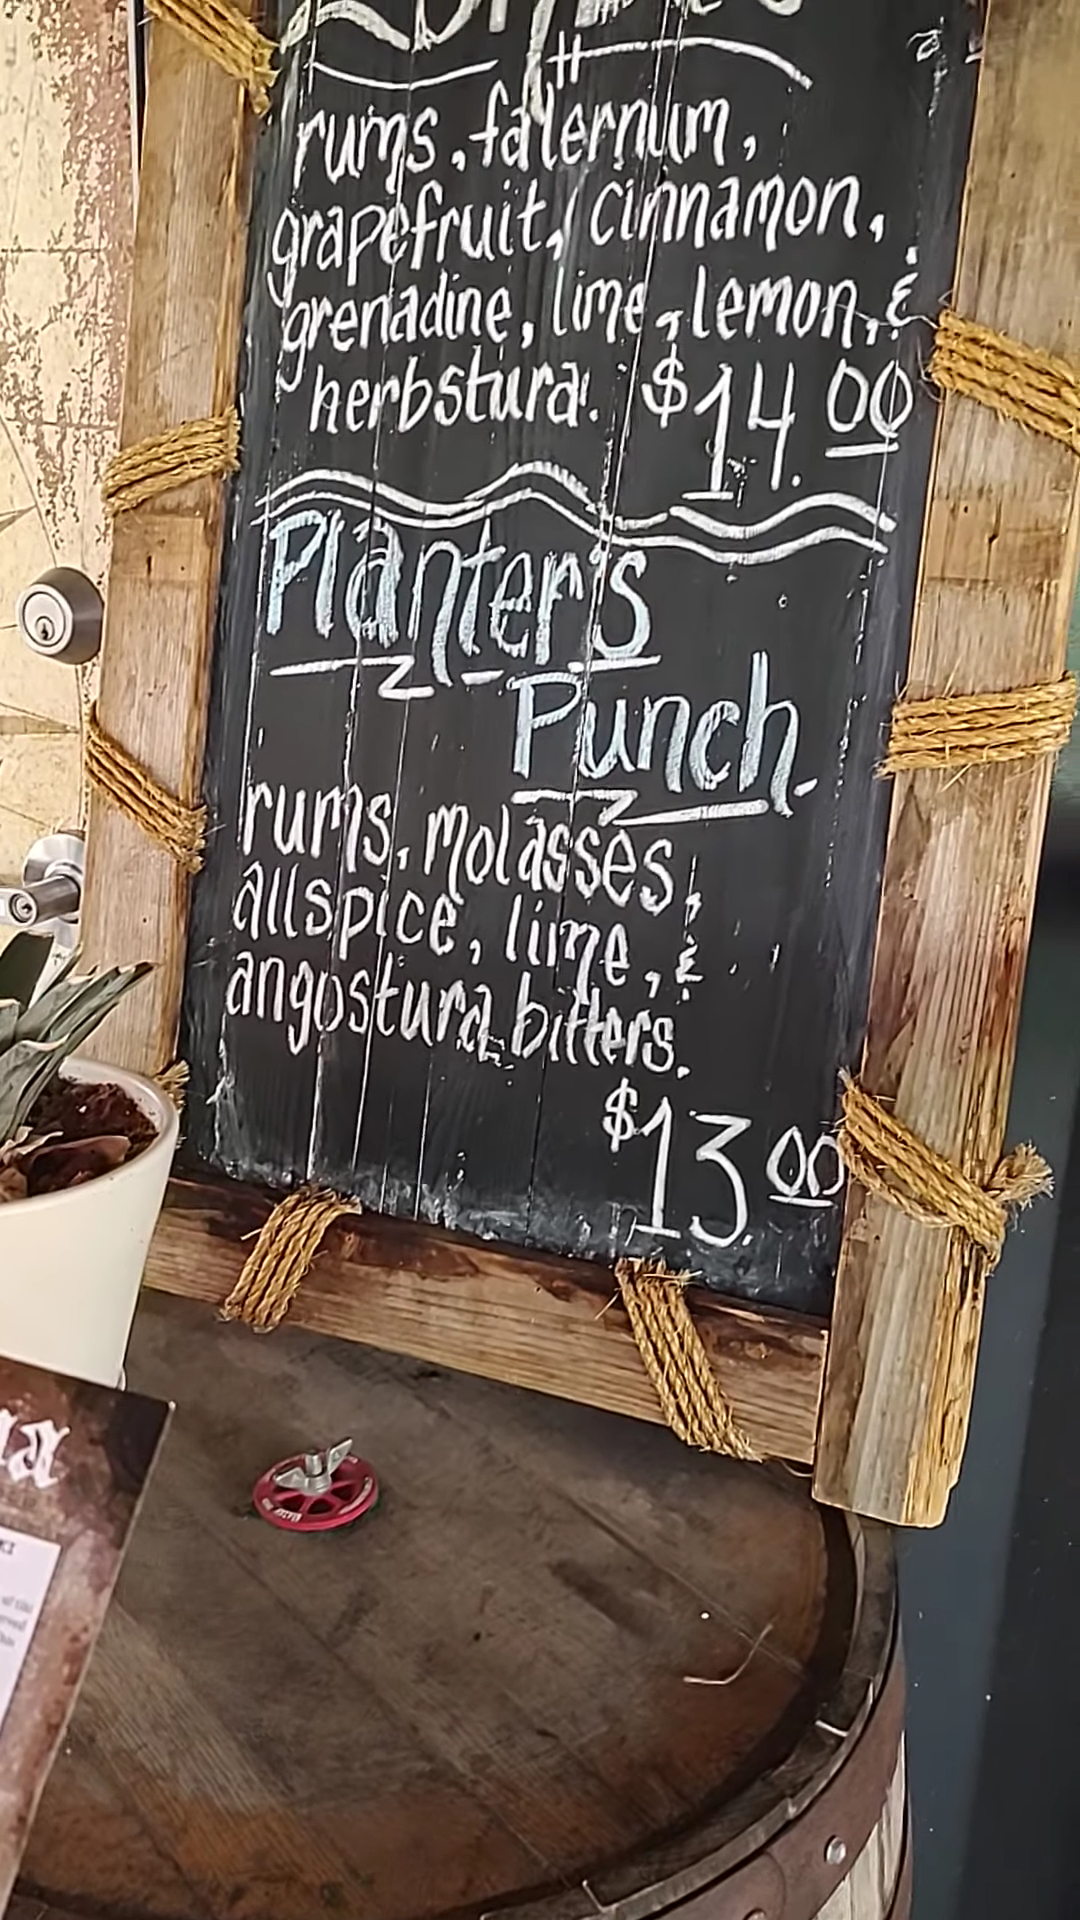 rums, falernum,
grapefruit, cinnamon,
grenadine, lime, lemon, &
herbstura. $14.00
Planter's
Punch
rums, molasses,
allspice, lime, &
angostura bitters.
$13.00